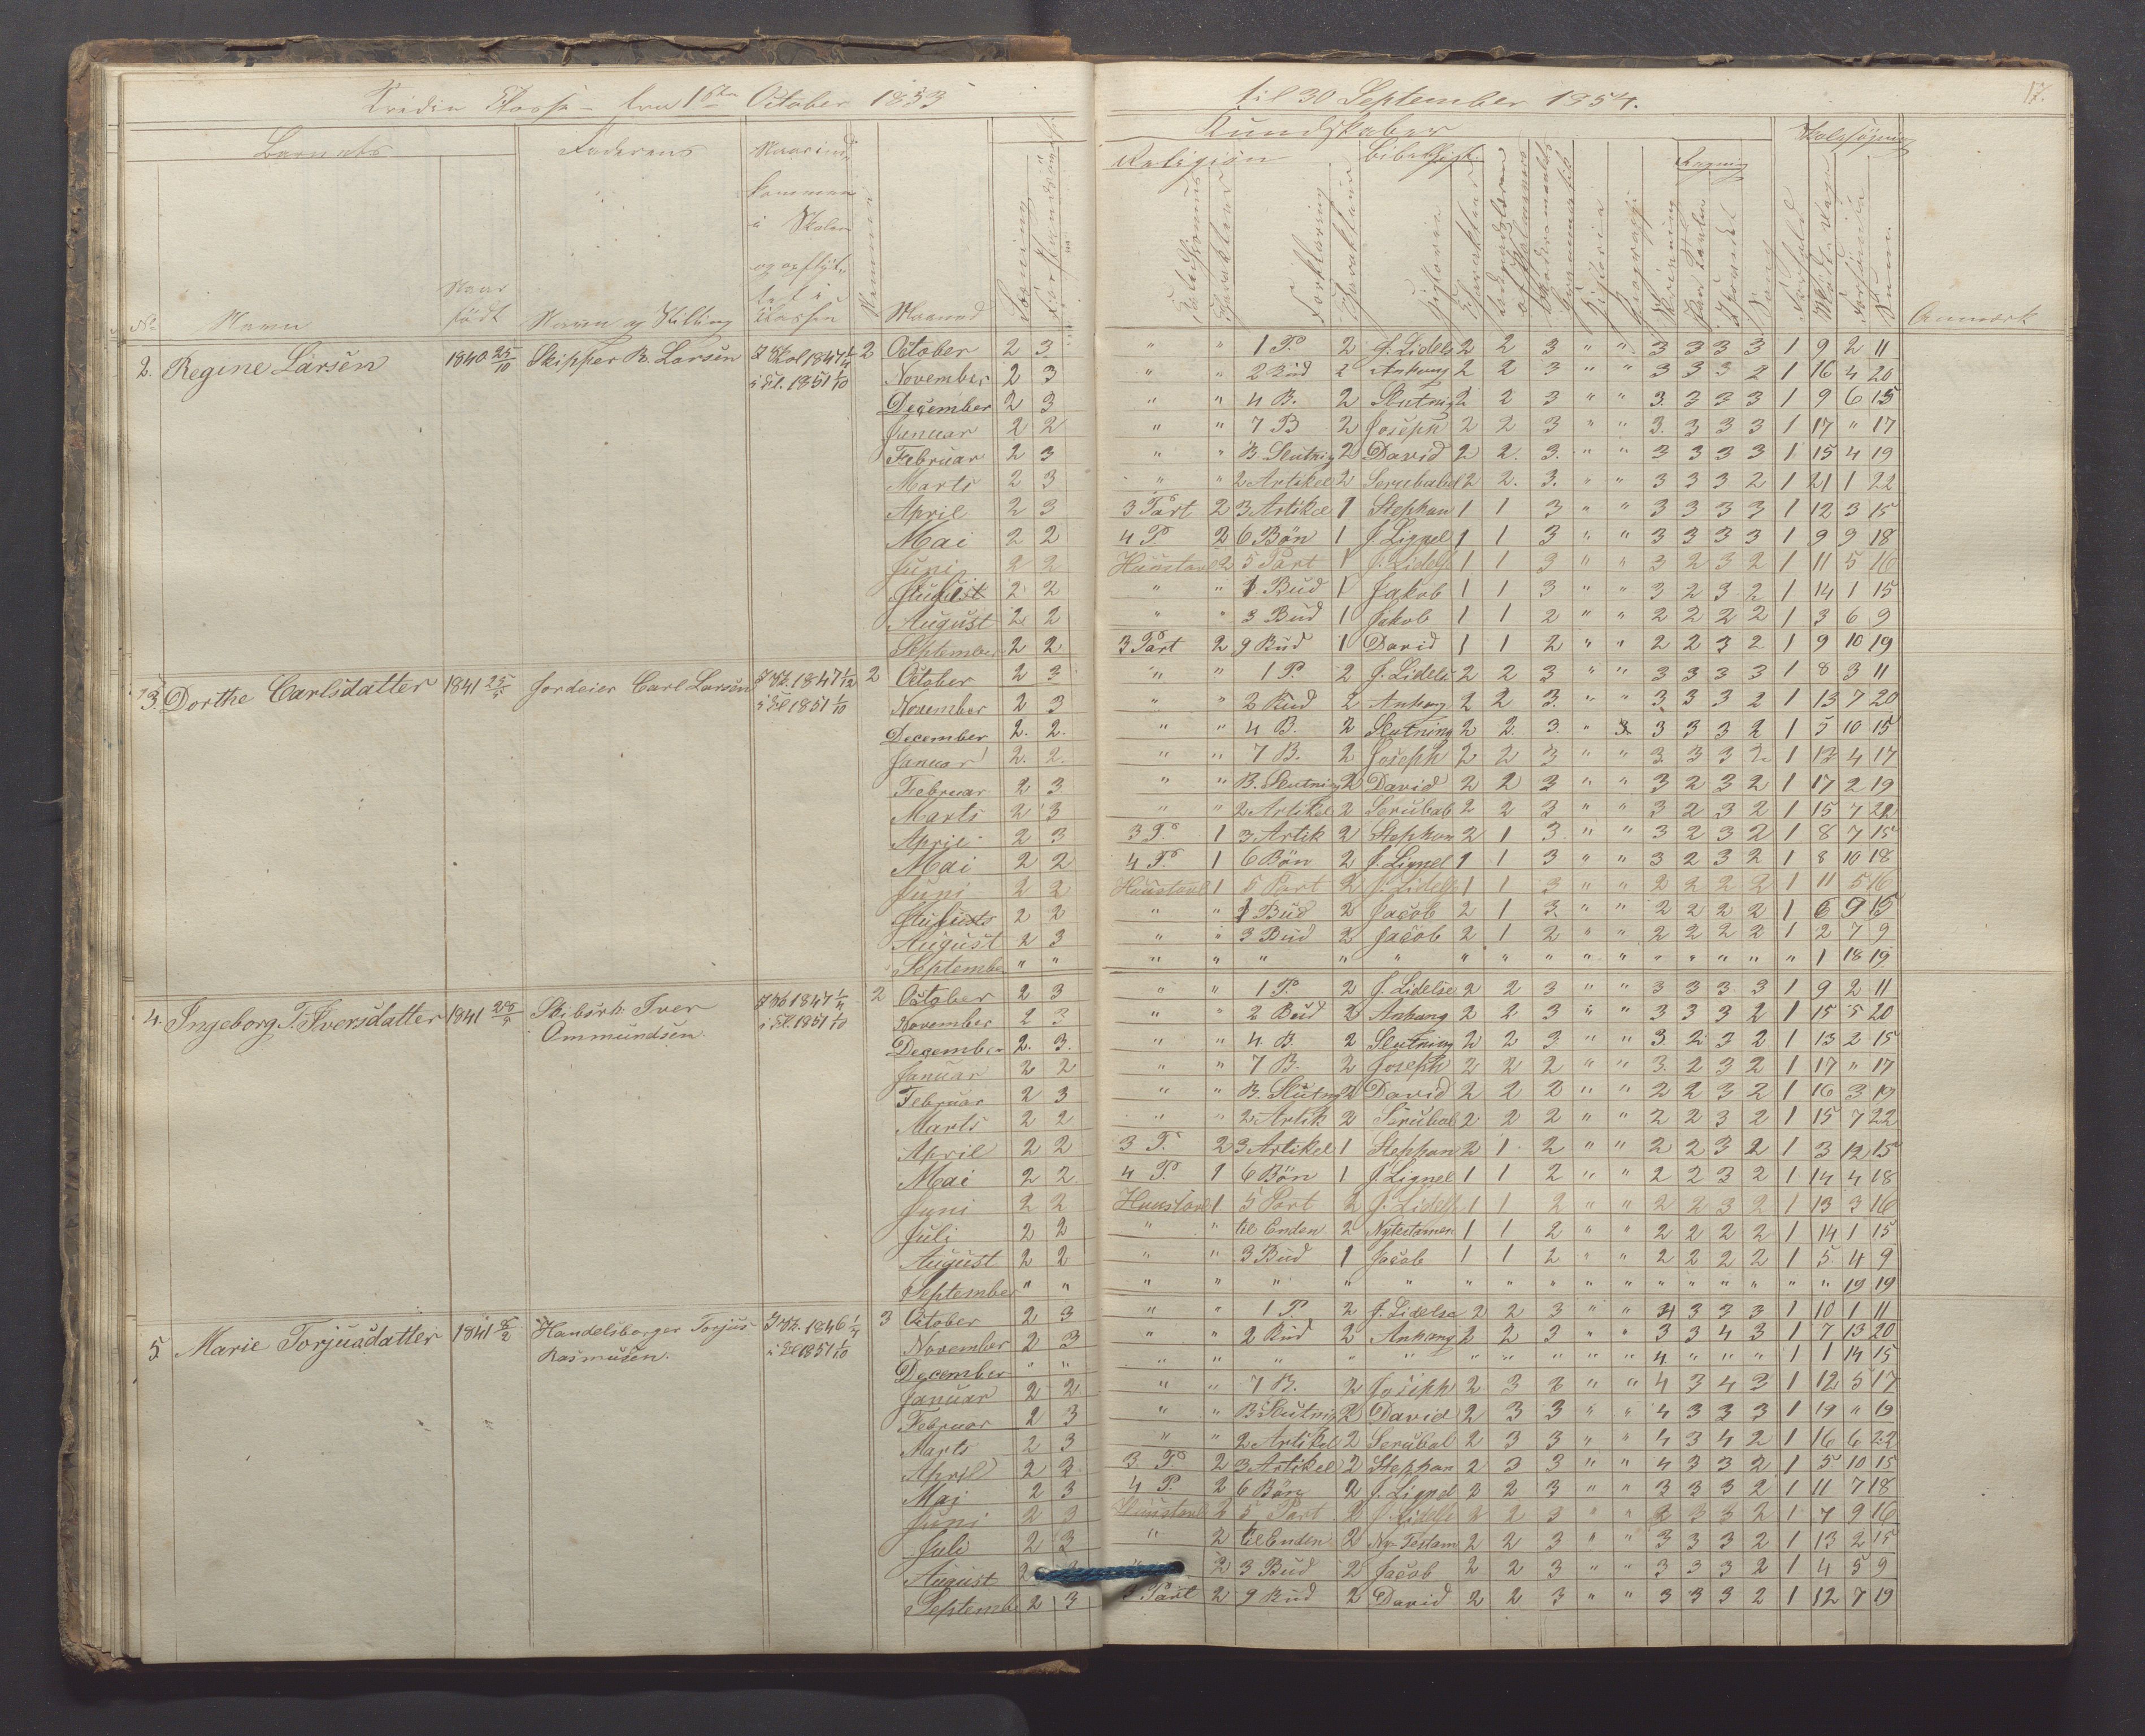 October 1853
til 30 September 1854.
17.
Kundskaber
Barnets
Faderens
Religion
Bibelhist.
Regning
Navn
født
Navn og Stilling
Maaned
Anmærk
2. Regine Larsen 1840 25/10 Skipper B. Larsen 2 October 2 3 " " 1 P. 2 J. Lidels 2 2 3 " " 3 3 3 3 1 9 2 11
November 2 3 " " 2 Bud 2 Anhang 2 2 3 " " 3 3 3 2 1 16 4 20
December 2 3 " " 4 B. 2 Slutning 2 2 3 " " 3. 3 3 3 1 9 6 15
Januar 2 2 " " 7 B 2 Joseph 2 2 3 " " 3. 3 3 3 1 17 " 17
Februar 2 3 " " B. Slutnig 2 David 2 2. 3. " " 3 3 3 3 1 15 4 19
Marts 2 3 " " 2 Artikel 2 Serubabel 2 2. 3. " " 3 3 3 2 1 21 1 22
April 2 3 3 Part 2 3 Artikel 1 Stephan 1 1 3 " " 3 3 3 3 1 12 3 15
Mai 2 2 4 P 2 6 Bön 1 J. Lignel 1 1 3 " " 3 3 3 3 1 9 9 18
Juni 2 2 Huustavl 2 5 Part 1 J. Lidels 1 1 3 " " 3 2 3 2 1 11 5 16
2 2 " " 1 Bud 1 Jakob 1 1 3 " " 3 2 3 2 1 14 1 15
August 2 2 " " 3 Bud 1 Jakob 1 1 2 " " 2 2 2 2 1 3 6 9
September 2 2 3 Part 2 9 Bud 1 David 1 1 2 " " 2 2 3 2 1 9 10 19
3. Dorthe Carlsdatter 1841 25/5 Jordeier Carl Larsen 2 October 2 3 " " 1 P. 2 J. Lidels 2 2 3 " " 3 3 3 3 1 8 3 11
November 2 3 " " 2 Bud 2 Anhang 2 2 3. " " 3 3 3 2 1 13 7 20
December 2. 2. " " 4 B. 2 Slutning 2 2. 3. " 3 3 3 2 1 5 10 15
Januar 2. 2. " " 7 B. 2 Joseph 2 2 3 " " 3. 3 3 2 1 13 4 17
Februar 2 3 " " B. Slutnig 2 David 2 2 3 " " 3 2 3 2 1 17 2 19
Marts 2 3 " " 2 Artikel 2 Serubab 2 2 3 " " 3 2 3 2 1 15 7 22
April 2 3 3 P. 1 3 Artik 2 Stephan 2 1 3 " " 3 2 3 2 1 8 7 15
Mai 2 2 4 P. 1 6 Bön 2 J. Lignel 1 1 3 " " 3 2 3 2 1 8 10 18
Juni 2 2 Huustavl 1 5 Part 2 J. Lidels 1 1 3 " " 2 2 2 2 1 11 5 16
2 2 " " 1 Bud 2 Jacob 2 1 3. " " 2 2 2 2 1 6 9 15
August 2 3 " " 3 Bud 2 Jacob 2 1 2 " " 2 2 2 2 1 2 7 9
Septembe " " " " " " " " " " " " " " " " " 1 18 19
4. Ingeborg T. Iversdatter 1841 Iver 2 October 2 3 " " 1 P. 2 J. Lidelse 2 2 3 " " 3 3 3 3 1 9 2 11
Ommundsen. November 2 3 " " 2 Bud 2 Anhang 2 2 3 " " 3 3 3 2 1 15 5 20
December 2. 3. " " 4 B. 2 Slutning 2 2 3 " " 3. 2 3 2 1 13 2 15
Januar 2 2 " " 7 B. 2 Joseph 2 2 2 " " 3. 2 3 2 1 17 " 17
Februar 2 3 " " B. Slutng 2 David 2 2 2 " " 2 2 3 2 1 16 3 19
Marts 2 2 " " 2 Artik 2 Serubal 2 2 2 " " 2 2 3 2 1 15 7 22
April 2 2 3 P. 2 3 Artikel 1 Stephan 2 1 2 " " 2 2 3 2 1 3 12 15
Mai 2 2 4 P. 1 6 Bön 1 J. Lignel 1 1 2 " " 2 2 3 2 1 14 4 18
Juni 2 2 Huustavl 1 5 Part 2 J. Lidels 1 1 2 " " 2 2 3 2 1 13 3 16
Juli 2 2 " " til Enden 2 Nytestamen 1 1 2 " " 2 2 2 2 1 14 1 15
August 2 2 " " 3 Bud 1 Jacob 1 1 2 " " 2 2 2 2 1 5 4 9
September " " " " " " " " " " " " " " " " " " 19 19
5 Marie Torjusdatter 1841 8/2 Handelsborger Torjus 3 October 2 3 " " 1 P. 2 J. Lidelse 2 2 3 " " 4 3 3 3 1 10 1 11
Rasmusen. November 2 3 " " 2 Bud 2 Anhang 2 2 3 " " 3 3 4 3 1 7 13 20
December " " " " " " " " " " " " 4 " " " 1 1 14 15
Januar 2 2 " " 7 B. 2 Joseph 2 3 3 " " 4 3 4 3 1 12 5 17
Februar 2 3 " " B. Slutnig 2 David 2 3 3 " " 4 3 3 3 1 19 " 19
Marts 2 3 " " 2 Artikel 2 Serubal 2 3 3 " " 4 3 4 2 1 16 6 22
April 2 2 3. P. 2 3 Artikel 2 Stephan 2 3 3 " " 4 3 3 2 1 5 10 15
Maj 2 3 4 P. 2 6 Bön 2 J. Lignel 2 2 3 " " 3 3 3 2 1 11 7 18
Juni 2 3 Huustavl 2 5 Part 2 J. Lidels 2 2 3 " " 2 3 3 2 1 7 9 16
Juli 2 3 " 2 til Enden 2 Ny-Testam 2 2 3 " " 3 3 3 2 1 13 2 15
August 2 2 3 Bud 2 Jacob 2 2 3 " " 3 3 3 2 1 4 5 9
Septemb 2 3 3 Part 2 9 Bud 2 David 2 2 3 " " 3 3 3 2 1 12 7 19